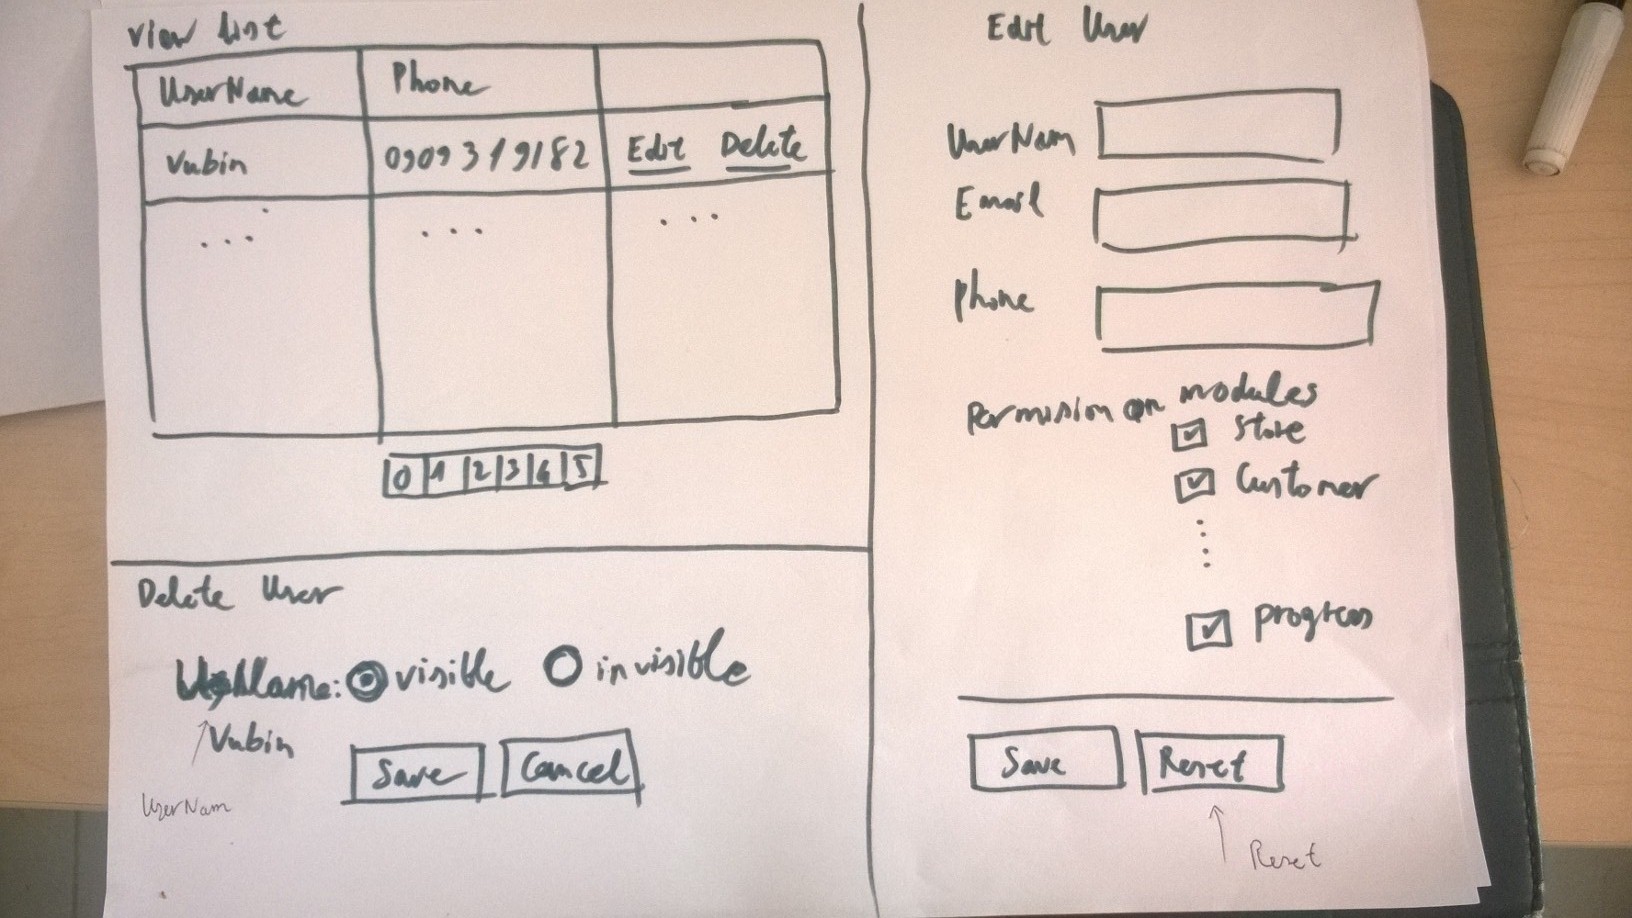 View list
UserName Phone
Vubin 0909319182 Edit Delete
... ... ...
0 1 2 3 4 5
Delete User
UserName: visible invisible
Vubin
Save Cancel
UserNam
Edit User
UserNam
Email
Phone
Permission on modules
Store
Customer
....
progress
Save Reset
Reset